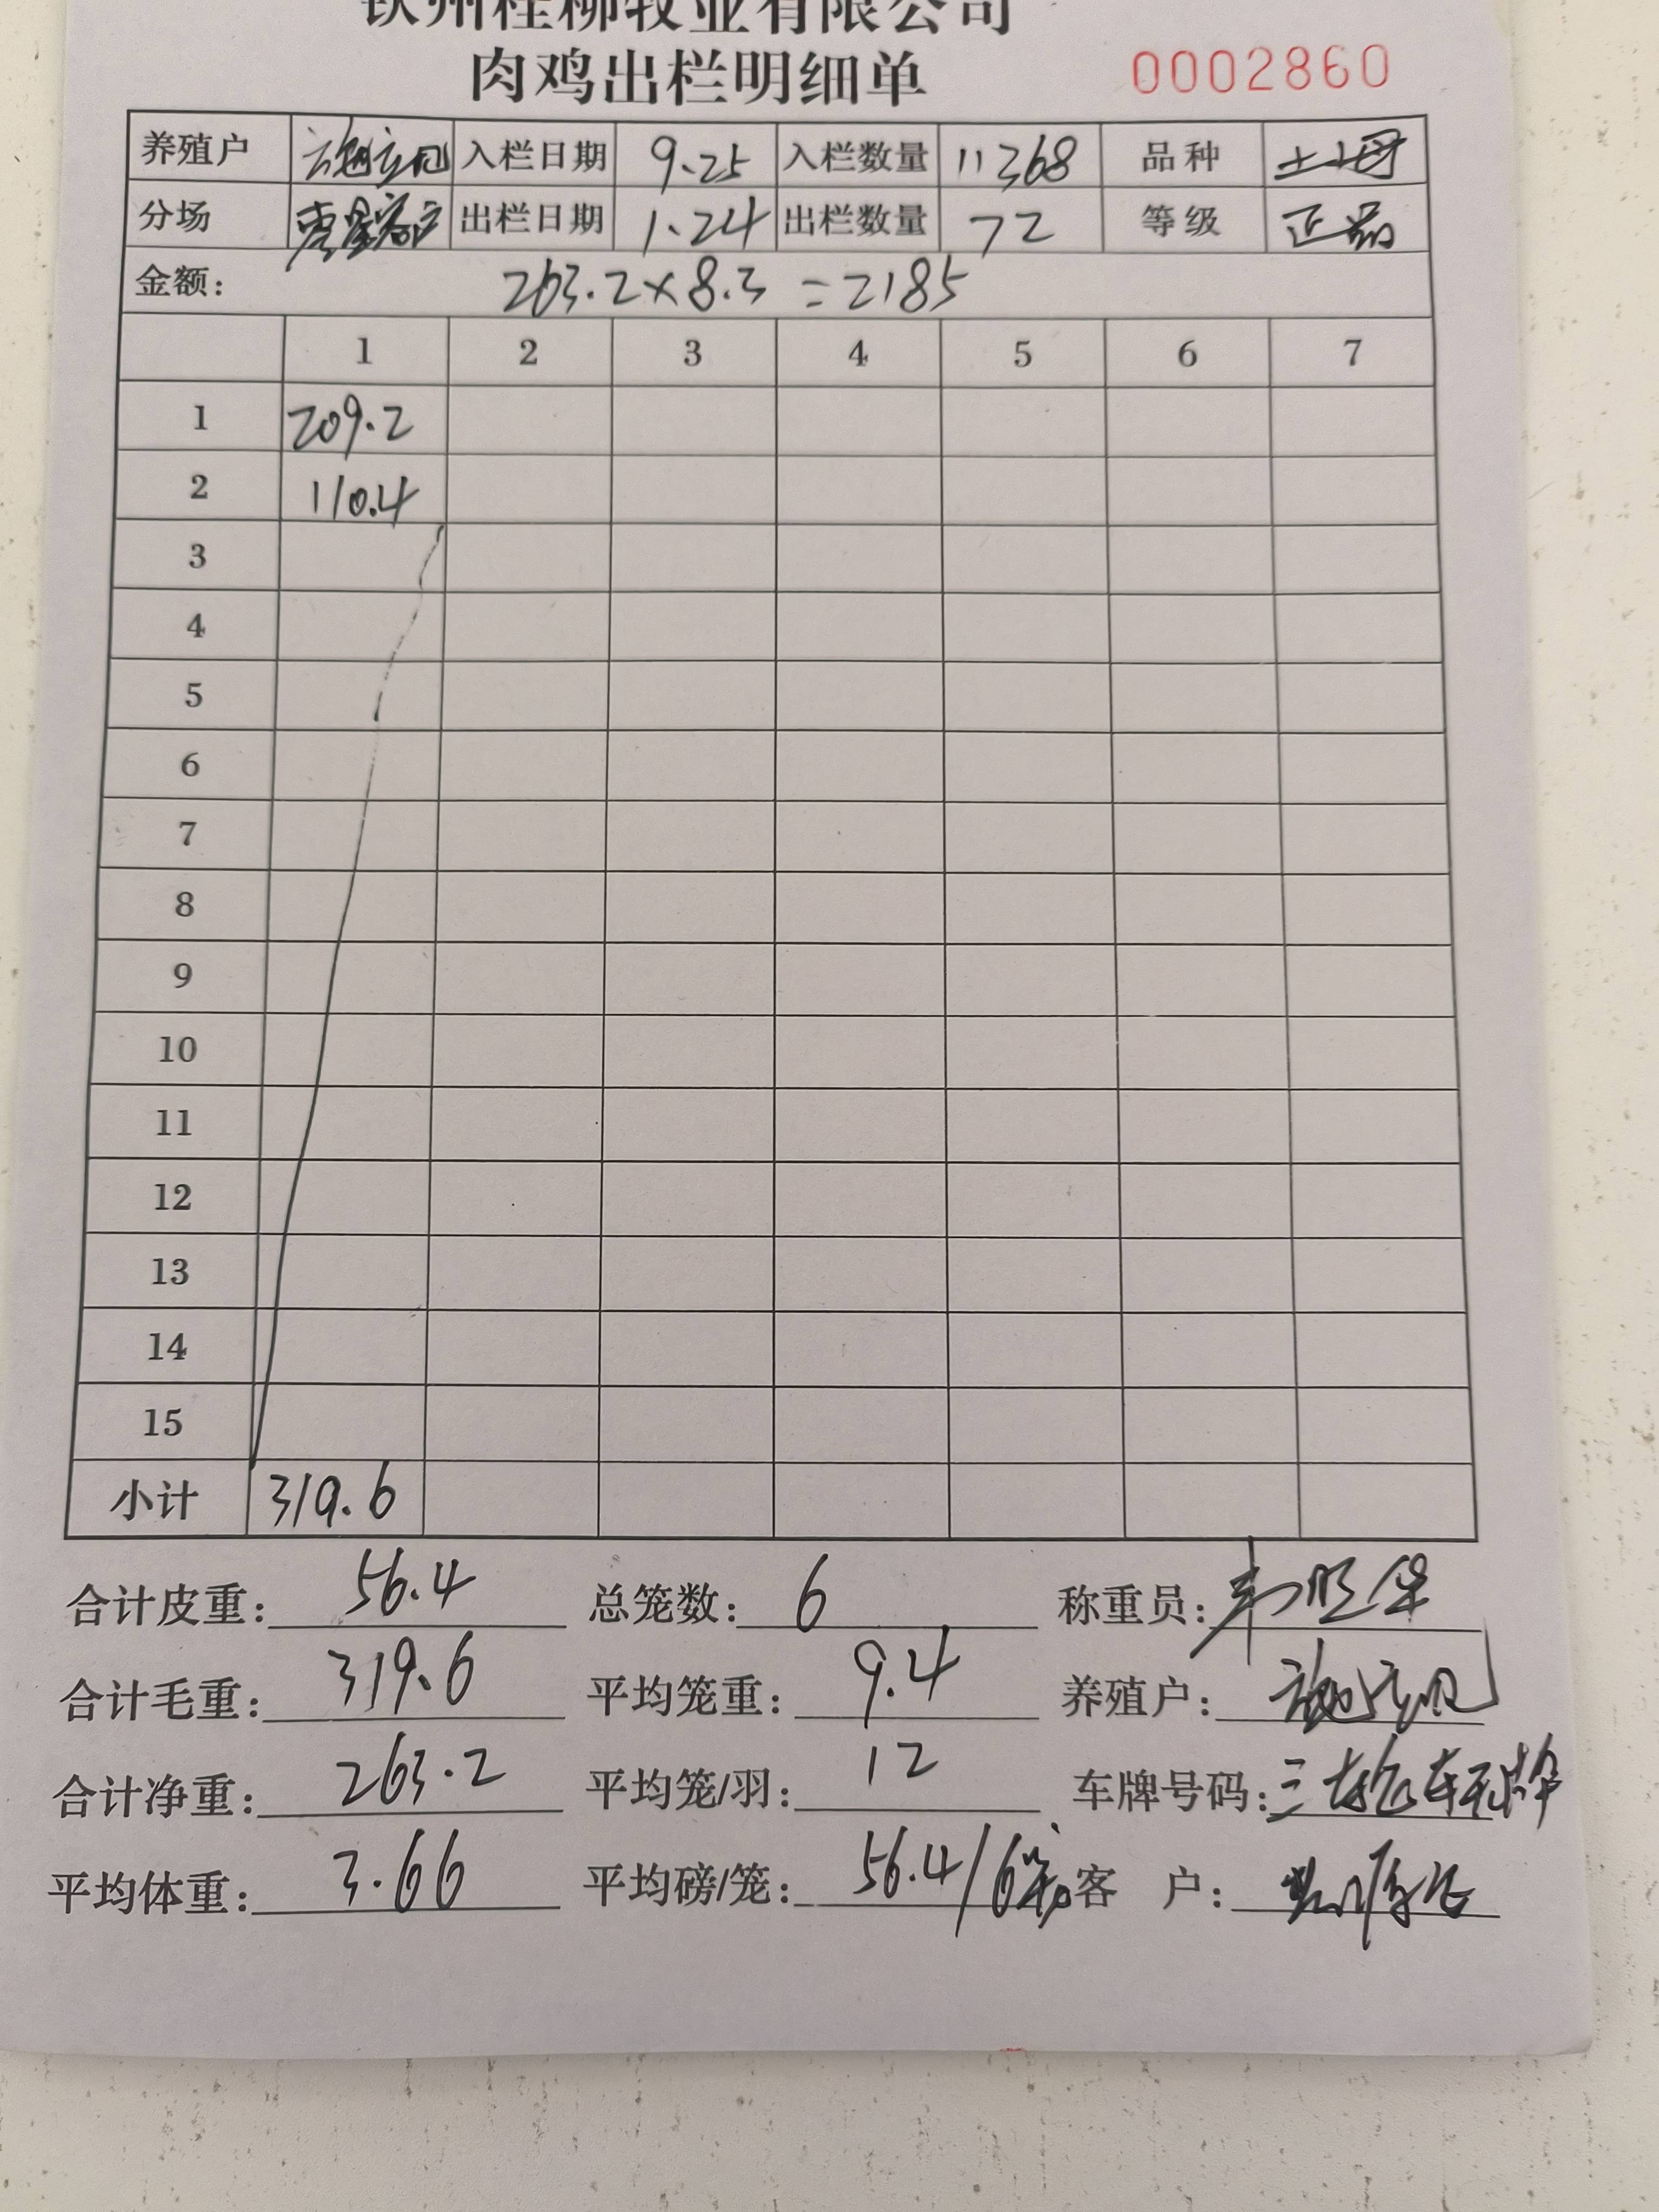 钦州桂柳牧业有限公司
肉鸡出栏明细单 0002860
养殖户 入栏日期 9.25 入栏数量 11368 品种 土2母
分场 零星客户 出栏日期 1.24 出栏数量 72 等级 正品
金额: 263.2×8.3=2185
1 2 3 4 5 6 7
1 209.2
2 110.4
3
4
5
6
7
8
9
10
11
12
13
14
15
小计 319.6
合计皮重: 56.4 总笼数: 6 称重员:
合计毛重: 319.6 平均笼重: 9.4 养殖户:
合计净重: 263.2 平均笼/羽: 12 车牌号码: 三轮车无牌
平均体重: 3.66 平均磅/笼: 56.4/6笼 客 户: